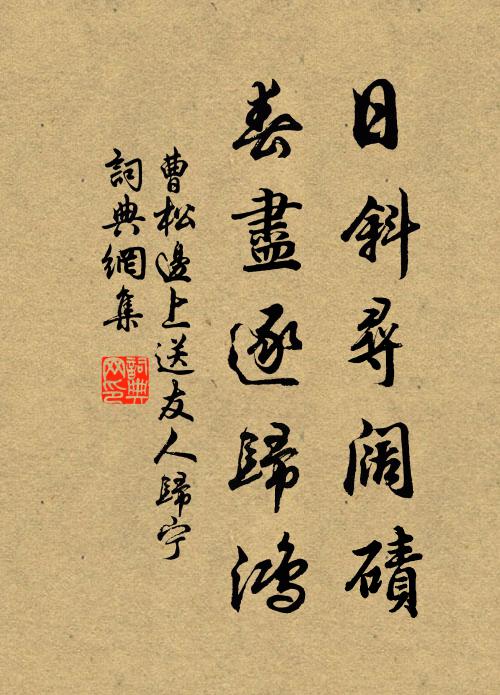 日斜尋阔磧
春盡逐歸鴻
曹松邊上送友人歸宁
詞典網集
詞典网印